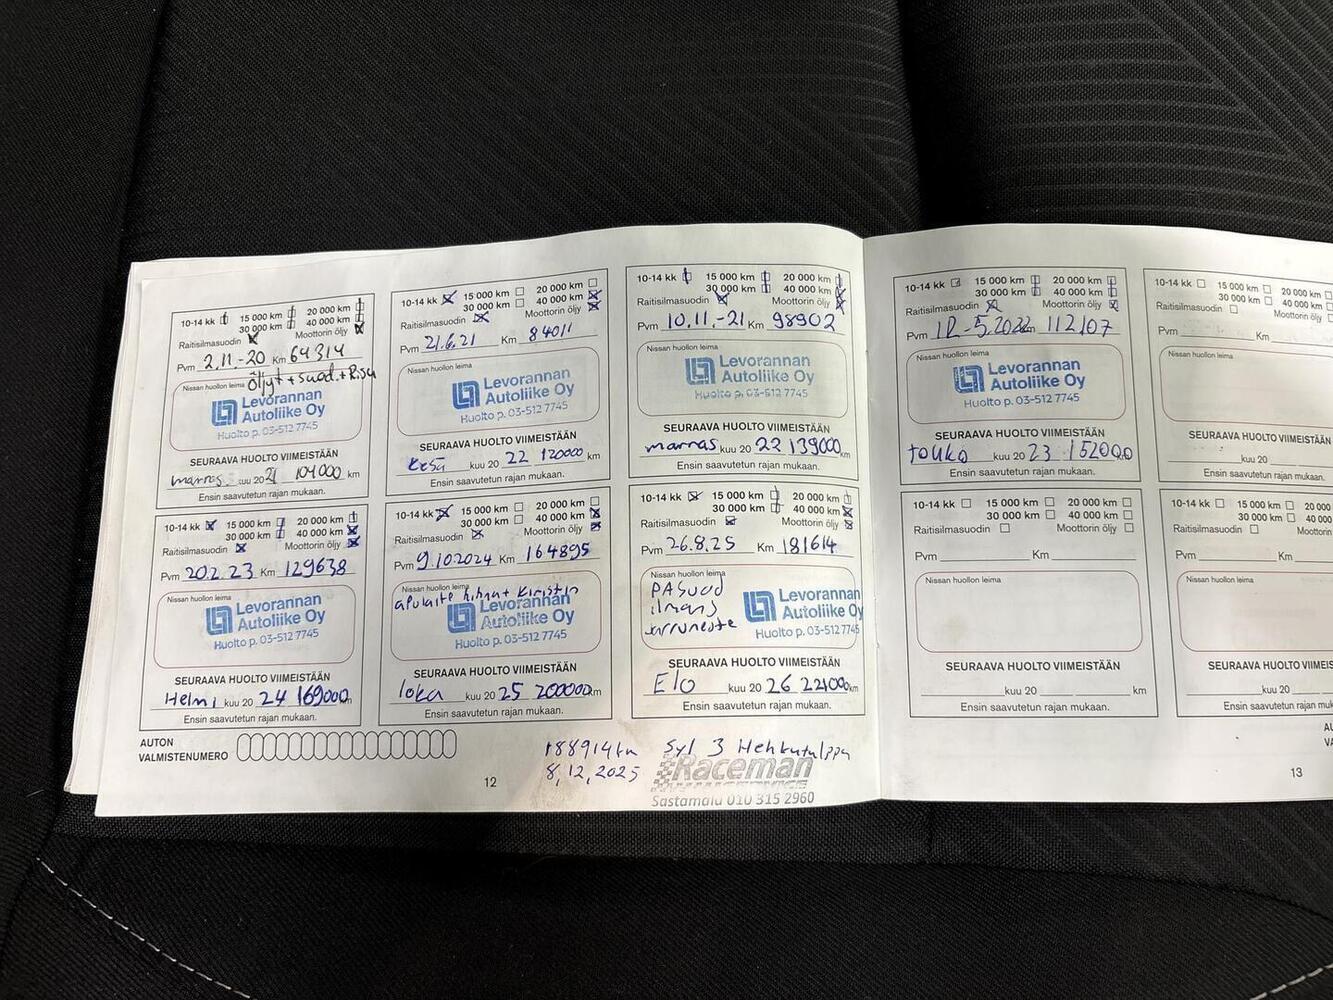 10-14 kk 15 000 km 20 000 km
30 000 km 40 000 km
Raitisilmasuodin Moottorin öljy
Pvm 2.11.-20 Km 64314
Nissan huollon leima Öljyt + suod. +
Levorannan
Autoliike Oy
Huolto p. 03-512 7745
SEURAAVA HUOLTO VIIMEISTÄÄN
marras kuu 2021 104000 km
Ensin saavutetun rajan mukaan.
10-14 kk 15 000 km 20 000 km
30 000 km 40 000 km
Raitisilmasuodin Moottorin öljy
Pvm 21.6.21 Km 84011
Nissan huollon leima
Levorannan
Autoliike Oy
Huolto p. 03-512 7745
SEURAAVA HUOLTO VIIMEISTÄÄN
Kesä kuu 2022 120000 km
Ensin saavutetun rajan mukaan.
10-14 kk 15 000 km 20 000 km
30 000 km 40 000 km
Raitisilmasuodin Moottorin öljy
Pvm 10.11.-21 Km 98902
Nissan huollon leima
Levorannan
Autoliike Oy
Huolto p. 03-512 7745
SEURAAVA HUOLTO VIIMEISTÄÄN
marras kuu 2022 139000 km
Ensin saavutetun rajan mukaan.
10-14 kk 15 000 km 20 000 km
30 000 km 40 000 km
Raitisilmasuodin Moottorin öljy
Pvm 20.2.23 Km 129638
Nissan huollon leima
Levorannan
Autoliike Oy
Huolto p. 03-512 7745
SEURAAVA HUOLTO VIIMEISTÄÄN
Helmi kuu 2024 169000 km
Ensin saavutetun rajan mukaan.
10-14 kk 15 000 km 20 000 km
30 000 km 40 000 km
Raitisilmasuodin Moottorin öljy
Pvm 9.10.2024 Km 164895
Nissan huollon leima
apulaite hihnat Kiristin
Levorannan
Autoliike Oy
Huolto p. 03-512 7745
SEURAAVA HUOLTO VIIMEISTÄÄN
loka kuu 2025 200000 km
Ensin saavutetun rajan mukaan.
10-14 kk 15 000 km 20 000 km
30 000 km 40 000 km
Raitisilmasuodin Moottorin öljy
Pvm 26.8.25 Km 181614
Nissan huollon leima
PASuod
ilmans
Jarruneste
Levorannan
Autoliike Oy
Huolto p. 03-512 7745
SEURAAVA HUOLTO VIIMEISTÄÄN
Elo kuu 2026 221000 km
Ensin saavutetun rajan mukaan.
AUTON
VALMISTENUMERO
188914km Syl 3 Hehkutulppa
8,12,2025
Raceman
Sastamala 010 315 2960
12
10-14 kk 15 000 km 20 000 km
30 000 km 40 000 km
Raitisilmasuodin Moottorin öljy
Pvm 12.5.2022 km 112107
Nissan huollon leima
Levorannan
Autoliike Oy
Huolto p. 03-512 7745
SEURAAVA HUOLTO VIIMEISTÄÄN
touko kuu 2023 152000
Ensin saavutetun rajan mukaan.
10-14 kk 15 000 km 20 000 km
30 000 km 40 000 km
Raitisilmasuodin Moottorin öljy
Pvm Km
Nissan huollon leima
SEURAAVA HUOLTO VIIMEISTÄÄN
kuu 20
Ensin saavutetun rajan
10-14 kk 15 000 km 20 000 km
30 000 km 40 000 km
Raitisilmasuodin Moottorin öljy
Pvm Km
Nissan huollon leima
SEURAAVA HUOLTO VIIMEISTÄÄN
kuu 20 km
Ensin saavutetun rajan mukaan.
10-14 kk 15 000 km 20 000
30 000 km 40 000
Raitisilmasuodin Moottorin
Pvm Km
Nissan huollon leima
SEURAAVA HUOLTO
kuu 20
Ensin saavutetun rajan
13